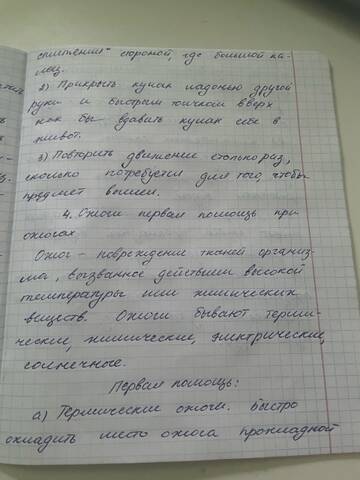 сплетения" стороной, где большой па-
лец.
2) Прикрыть кулак ладонью другой
руки и быстрым толчком вверх
как бы вдавить кулак себе в
живот.
3) Повторить движение столько раз,
сколько потребуется для того, чтобы
предмет вышел.
4. Ожоги первая помощь при
ожогах.
Ожог - повреждение тканей организ-
ма, вызванное действием высокой
температуры или химических
веществ. Ожоги бывают терми-
ческие, химические, электрические,
солнечные.
Первая помощь:
а) Термические ожоги. Быстро
охладить место ожога прохладной